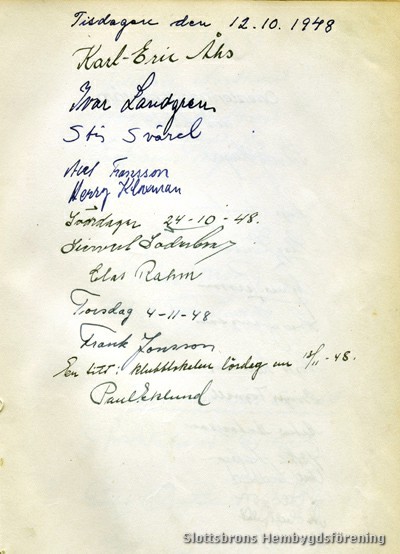 Tisdagen den 12.10.1948
Karl-Eric Åhs
Ivar Landgren
Stig Svärd
Axel Fransson
Henry Kloxman
24-10-48.
Söderberg
Elas Rahm
Torsdag 4-11-48
Frank Jonsson
En titt i klubblokalen lördag en 13/11-48.
Paul Eklund
Slottsbrons Hembygdsförening